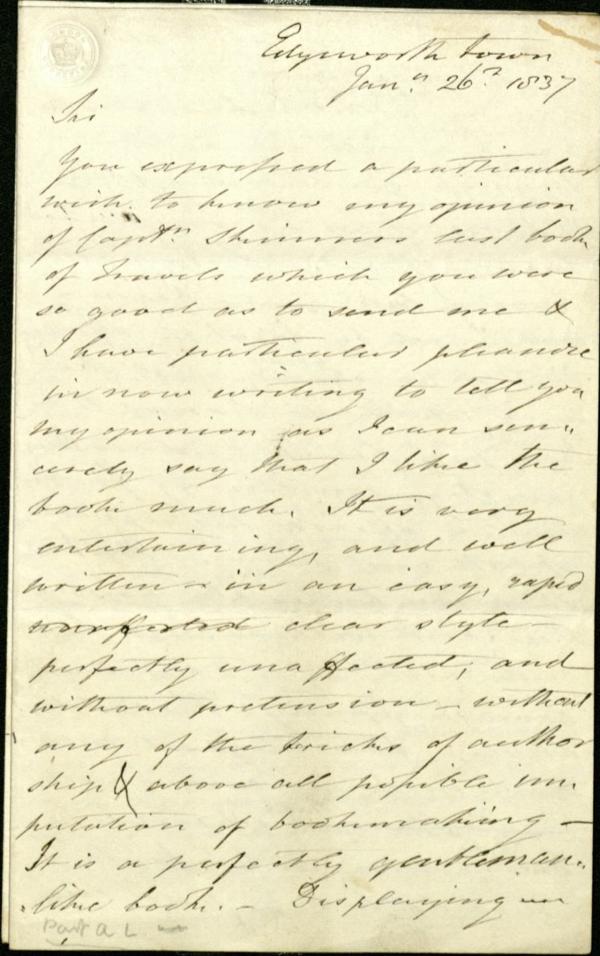 Edgeworth Town
Jany. 26th 1837
Sir
You expressed a particular
wish to know my opinion
of Captn. Skinners last book
of travels which you were
so good as to send me &
I have particular pleasure
in now writing to tell you
my opinion as I can sin-
cerely say that I like the
book much. It is very
entertaining, and well
written - in an easy, rapid
unaffected clear style -
perfectly unaffected, and
without pretension - without
any of the tricks of author
ship & above all possible im-
putation of bookmaking -
It is a perfectly gentleman-
-like book. - Displaying
Part a L